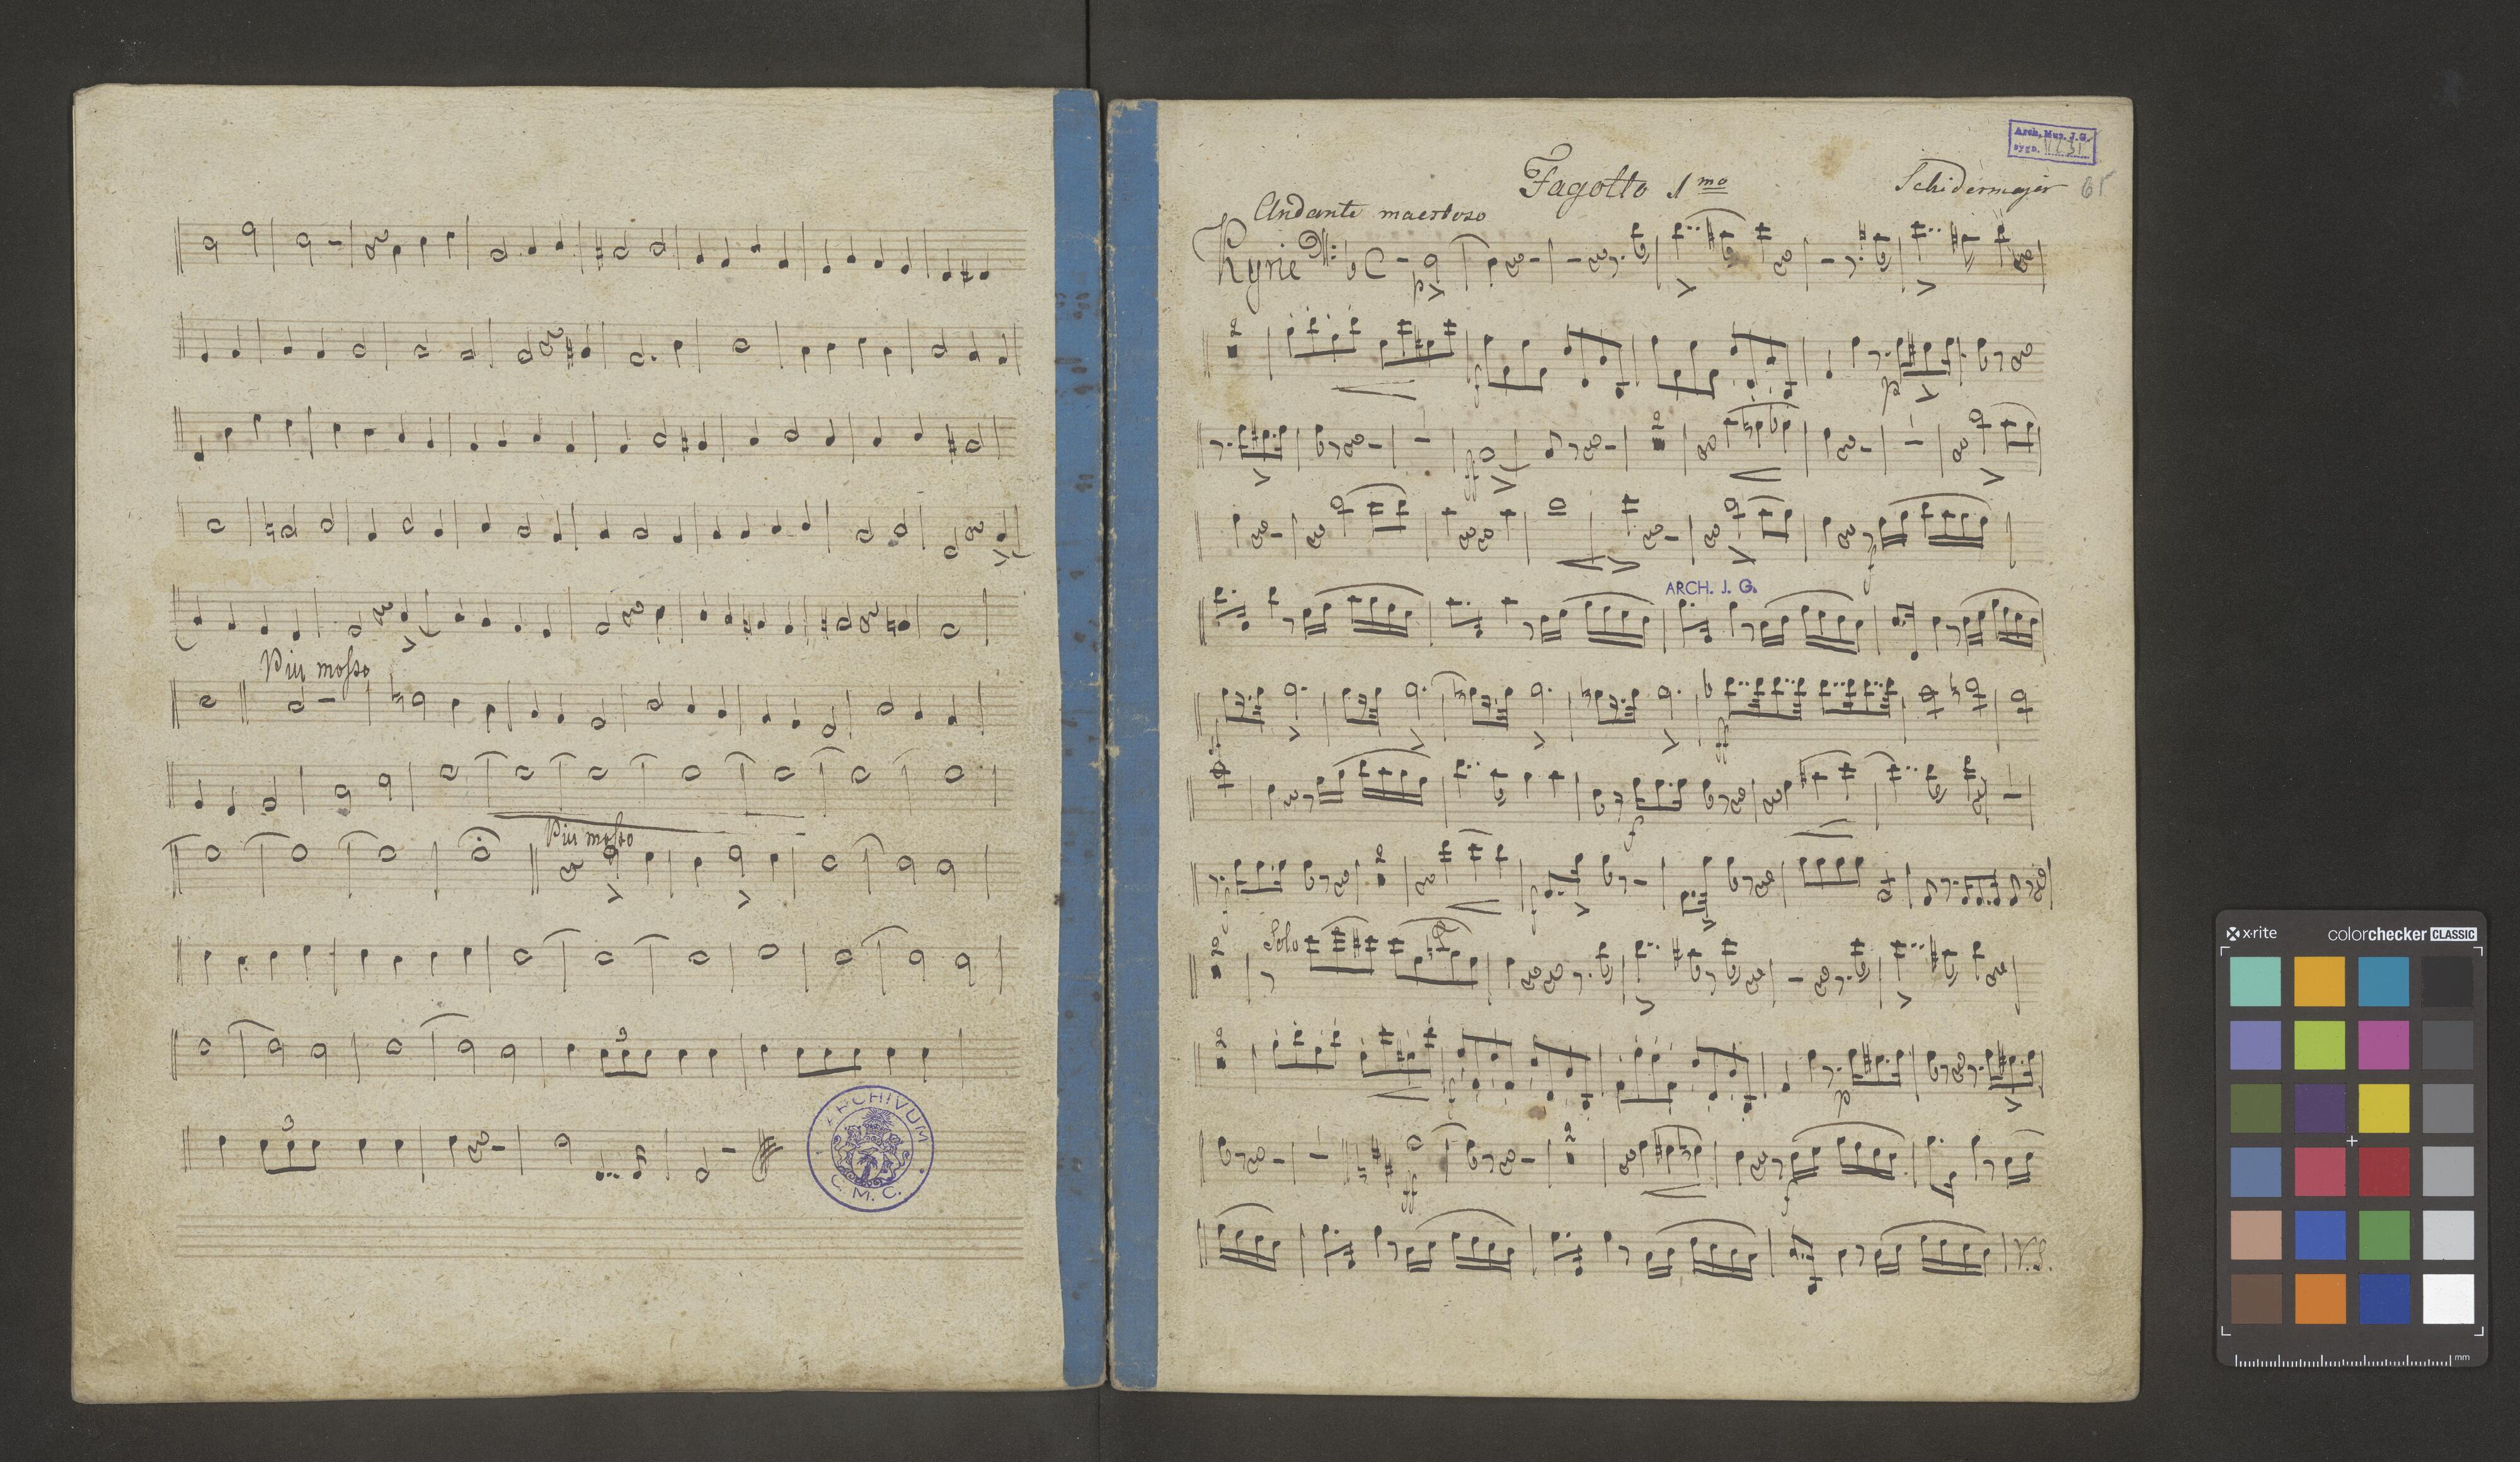 Piu mosso
Piu mosso
3
3
ARCHIVUM
C. M. C.
Arch. Muz. J. G.
sygn.
Fagotto 1mo
Schidermajer
65
Andante maestoso
Kyrie
p
2
f
p
ff
2
f
ARCH. J. G.
ff
f
f
2
f
2
Solo
2
f
p
ff
2
f
V.S.
x-rite
colorchecker CLASSIC
mm